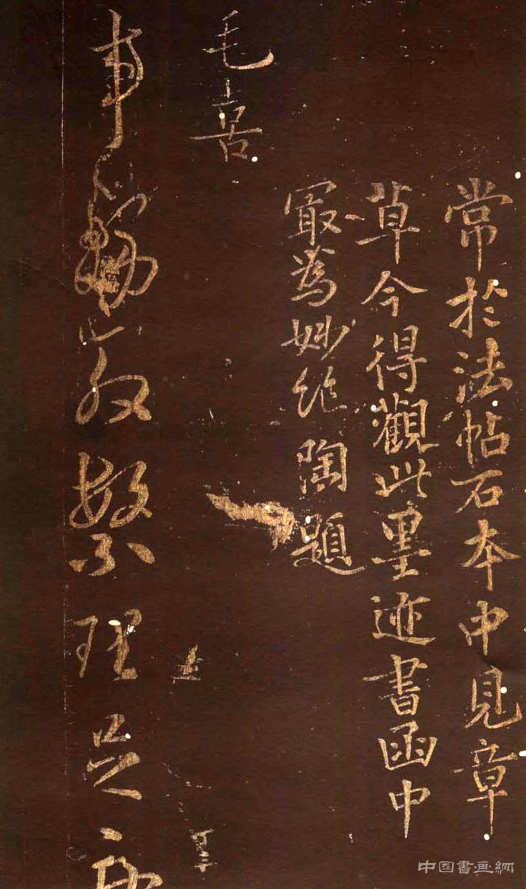 常於法帖石本中見章
草今得觀此墨迹書函中
㝡為妙絶陶題
毛喜
事繁理
中国書画網